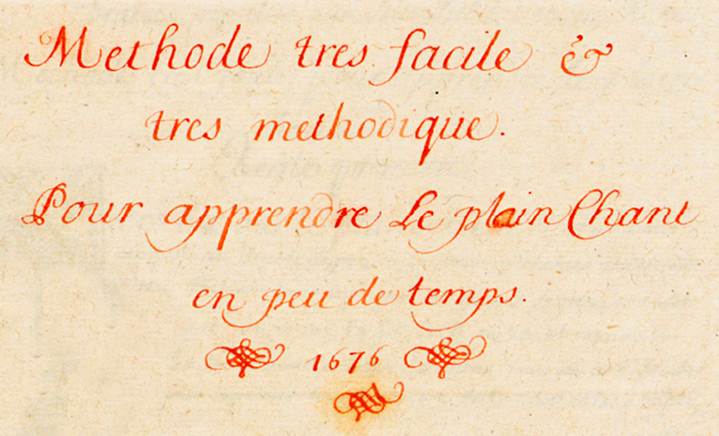 Methode tres facile &
tres methodique.
Pour apprendre Le plain Chant
en peu de temps.
1676